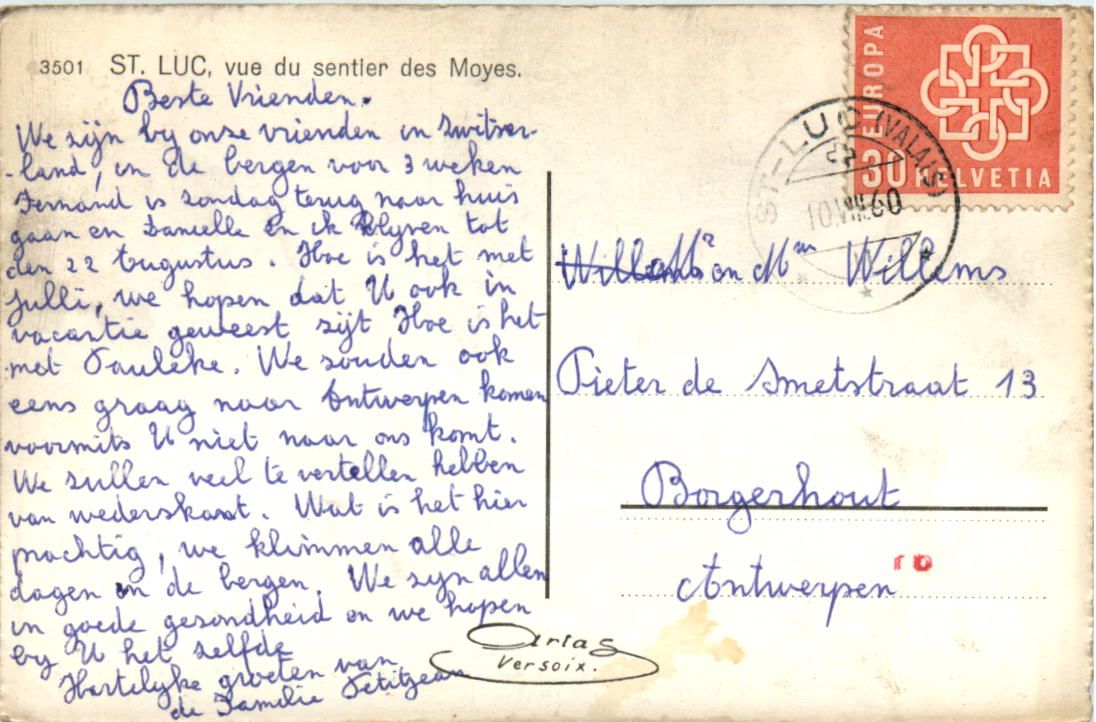 3501 ST. LUC, vue du sentier des Moyes.
Beste Vrienden.
We zijn by onze vrienden in Zwitser-
-land, in de bergen voor 3 weken
Fernand is zondag terug naar huis
gaan en Danielle en ik blyven tot
den 22 Augustus. Hoe is het met
Julli, we hopen dat U ook in
vacantie geweest zijt Hoe is het
met Pauleke. We zouden ook
eens graag naar Antwerpen komen
voormits U niet naar ons komt.
We zullen veel te vertellen hebben
van wederskant. Wat is het hier
prachtig, we klimmen alle
dagen in de bergen. We zyn allen
in goede gezondheid en we hopen
by U het zelfde
Hartelyke groeten van
de Familie Petitjean
EUROPA
30 HELVETIA
ST-LUC (VALAIS)
10.VIII.60
Mr en Mm Willems
Pieter de Smetstraat 13
Borgerhout
Antwerpen
Artas
Versoix.